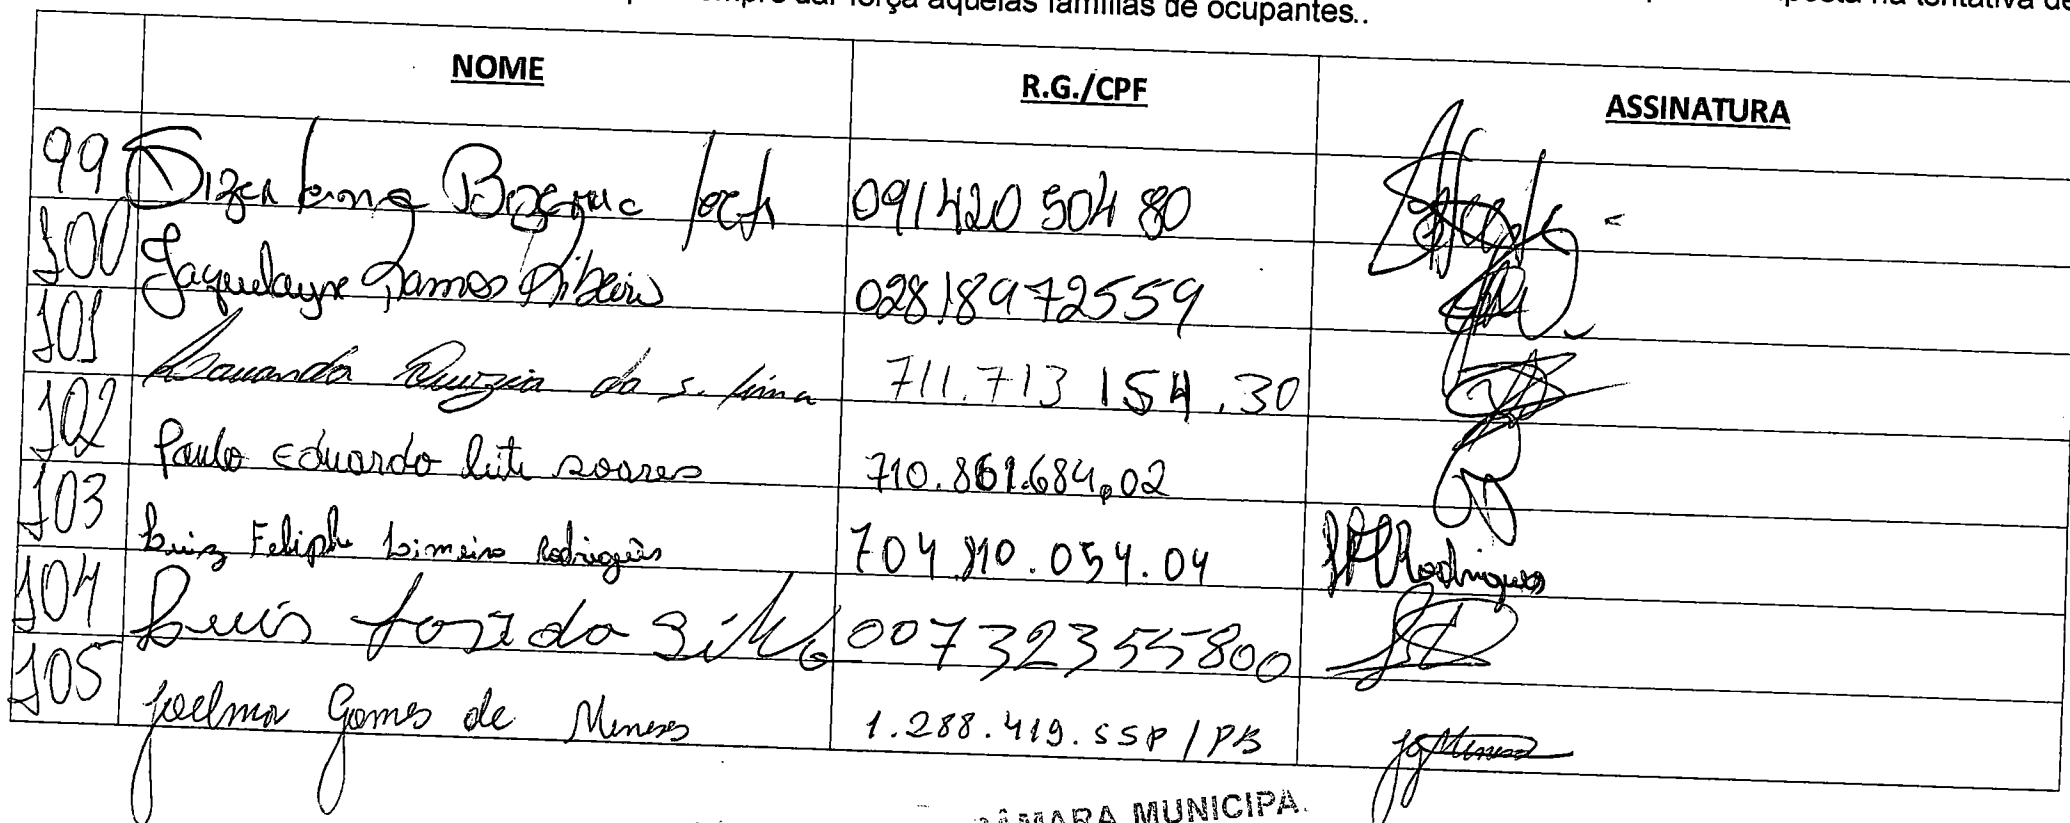 dar força àquelas famílias de ocupantes..
na tentativa de
NOME R.G./CPF ASSINATURA
99 091420 504 80
100 Jaquelayne Ramos Ribeiro 02818972559
101 da s. lima 711.713 154.30
102 Paulo Eduardo leite soares 710.861.684.02
103 Luiz Feliphe Limeira Rodrigues 704.810.054.04 Rodrigues
104 Luis José da Silva 00732355800
105 Joelma Gomes de Meneses 1.288.419.SSP/PB JGMeneses
CÂMARA MUNICIPA